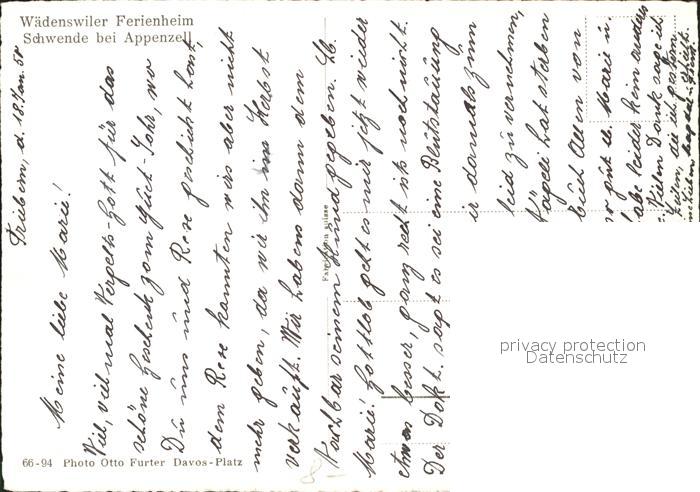 Wädenswiler Ferienheim
Schwende bei Appenzell
Trübern, d. 18. Jan. 54
Meine liebe Marie!
Viel, viel mal Vergelts-Gott für das
schöne Geschenk zom Glück-Jahr, wo
Du uns und Rese geschickt hast,
dem Rese kannten wirs aber nicht
mehr geben, da wir ihn im Herbst
verkauft. Wir habens dann dem
Nachbar seinem Hund gegeben. Lb.
Marie! Gottlob geht es mir jetzt wieder
etwas besser, ganz recht ists noch nicht.
Der Dokt. sagt es sei eine Blutstauung
ir damals zum
leid zu vernehmen,
hat sterben
Euch Allen von
Marie u.
abe leider kein anders
Vielen Dank sage ich
Fabrication suisse
66-94 Photo Otto Furter Davos-Platz
privacy protection
Datenschutz